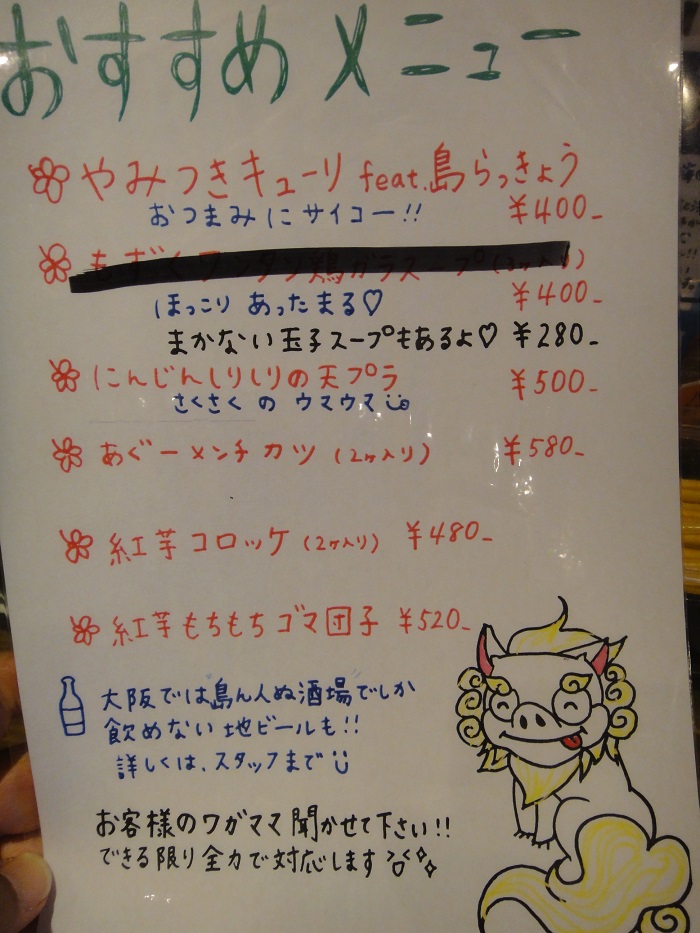 おすすめメニュー
やみつきキューリ feat.島らっきょう
おつまみにサイコー!! ¥400-
もずくワンタン鶏ガラスープ(3ヶ入り)
¥400-
ほっこり あったまる♡
まかない玉子スープもあるよ♡ ¥280-
にんじんしりしりの天プラ ¥500-
さくさくの ウマウマ
あぐーメンチカツ (2ヶ入り) ¥580-
紅芋コロッケ (2ヶ入り) ¥480-
紅芋もちもちゴマ団子 ¥520-
大阪では"島ん人ぬ酒場"でしか
飲めない地ビールも!!
詳しくは、スタッフまで
お客様のワガママ聞かせて下さい!!
できる限り全力で対応します